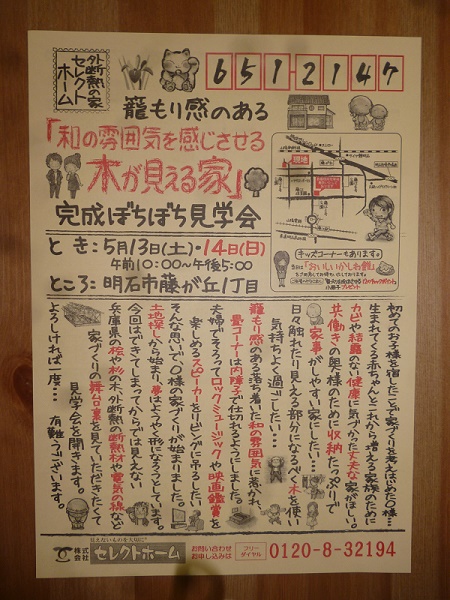 外断熱の家
セレクト
ホーム
6512147
籠もり感のある
「和の雰囲気を感じさせる
木が見える家」
完成ぼちぼち見学会
とき：5月13日(土)・14日(日)
午前10：00〜午後5：00
ところ：明石市藤が丘1丁目
現地
キッズコーナーもあります。
「おいしいかしわ餅」
初めてのお子様を宿したことで家づくりを考えはじめたO様…
生まれてくる赤ちゃんとこれから増える家族のために
カビや結露のない健康に気づかった丈夫な家がほしい。
共働きの奥様のために収納たっぷりで
家事がしやすい家にしたい…
日々触れたり見える部分になるべく木を使い
気持ちよく過ごしたい…
籠もり感のある落ち着いた和の雰囲気に惹かれ、
畳コーナーは内障子で仕切れるようにしました。
夫婦でそろってロックミュージックや映画鑑賞を
楽しめるスピーカーをリビングに吊るしたい
そんな思いでO様の家づくりが始まりました。
土地探しから始まり夢はようやく形になろうとしています。
今回はできてしまってからでは見えない
兵庫県の桧や杉の木、外断熱の断熱材や電気の線など
家づくりの舞台裏を見ていただきたくて
見学会を開きます。
よろしければ一度… 有難うございます。
見えないものを大切に
株式
会社
セレクトホーム
お問い合わせ
お申し込みは
フリー
ダイヤル
0120-8-32194